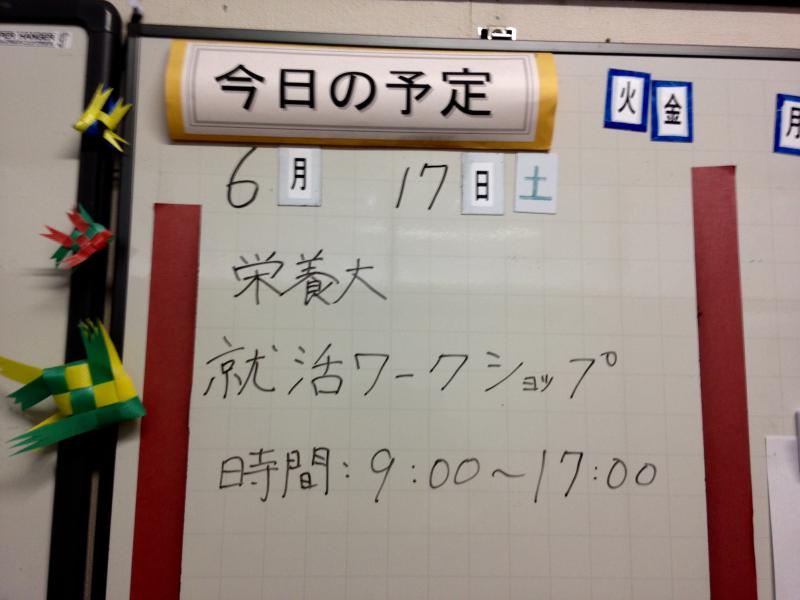 今日の予定
火 金
月
6月 17日 土
栄養大
就活ワークショップ
時間:9:00～17:00